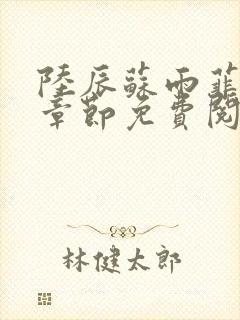 陸辰蘇雨菲
章節免費閱
林健太郎